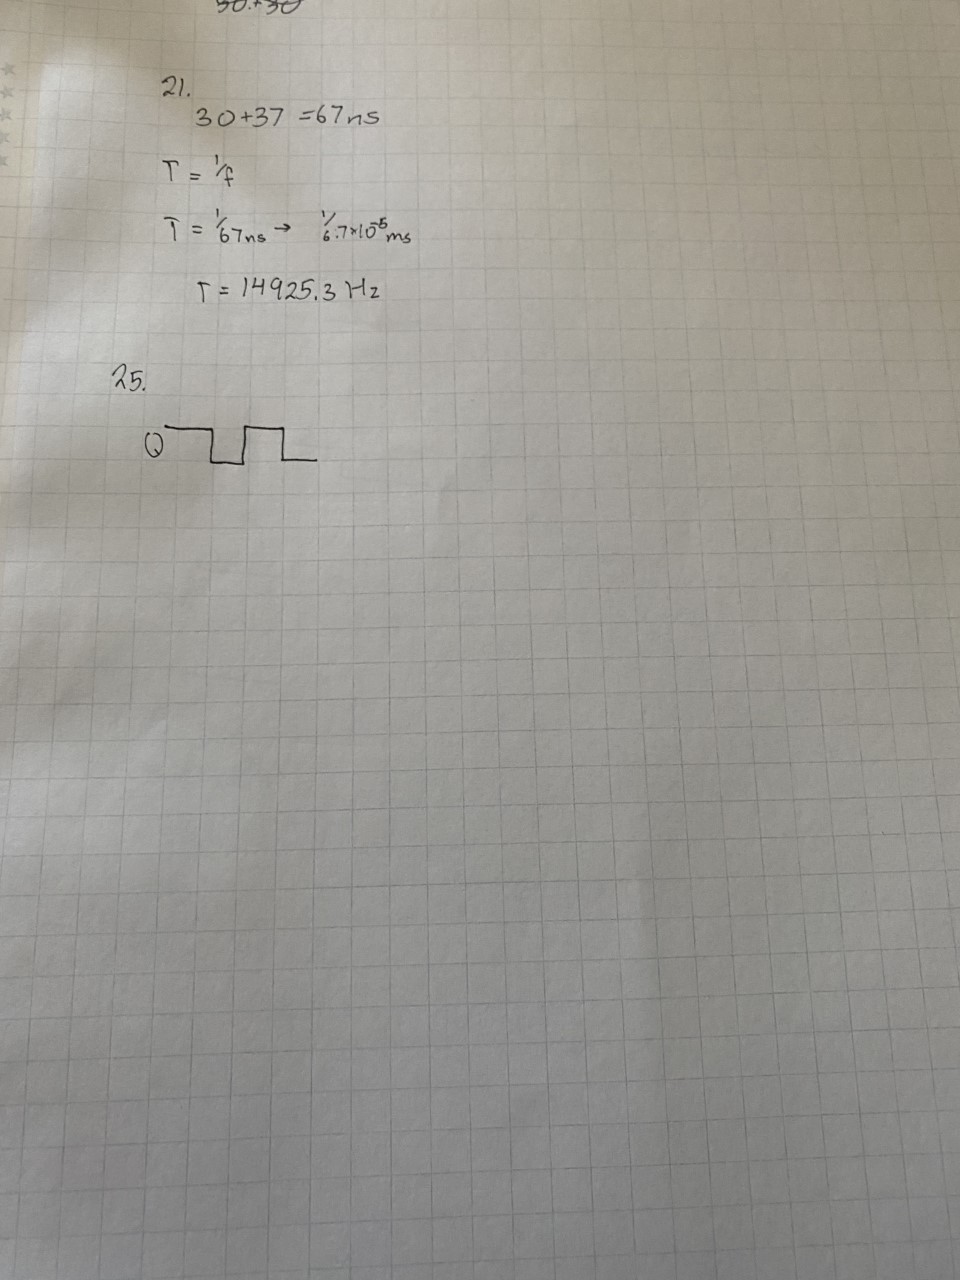 30.+30
21.
30+37 =67ns
T = 1/f
T = 1/67ns → 1/6.7×10⁻⁵ms
T = 14925.3 Hz
25.
Q